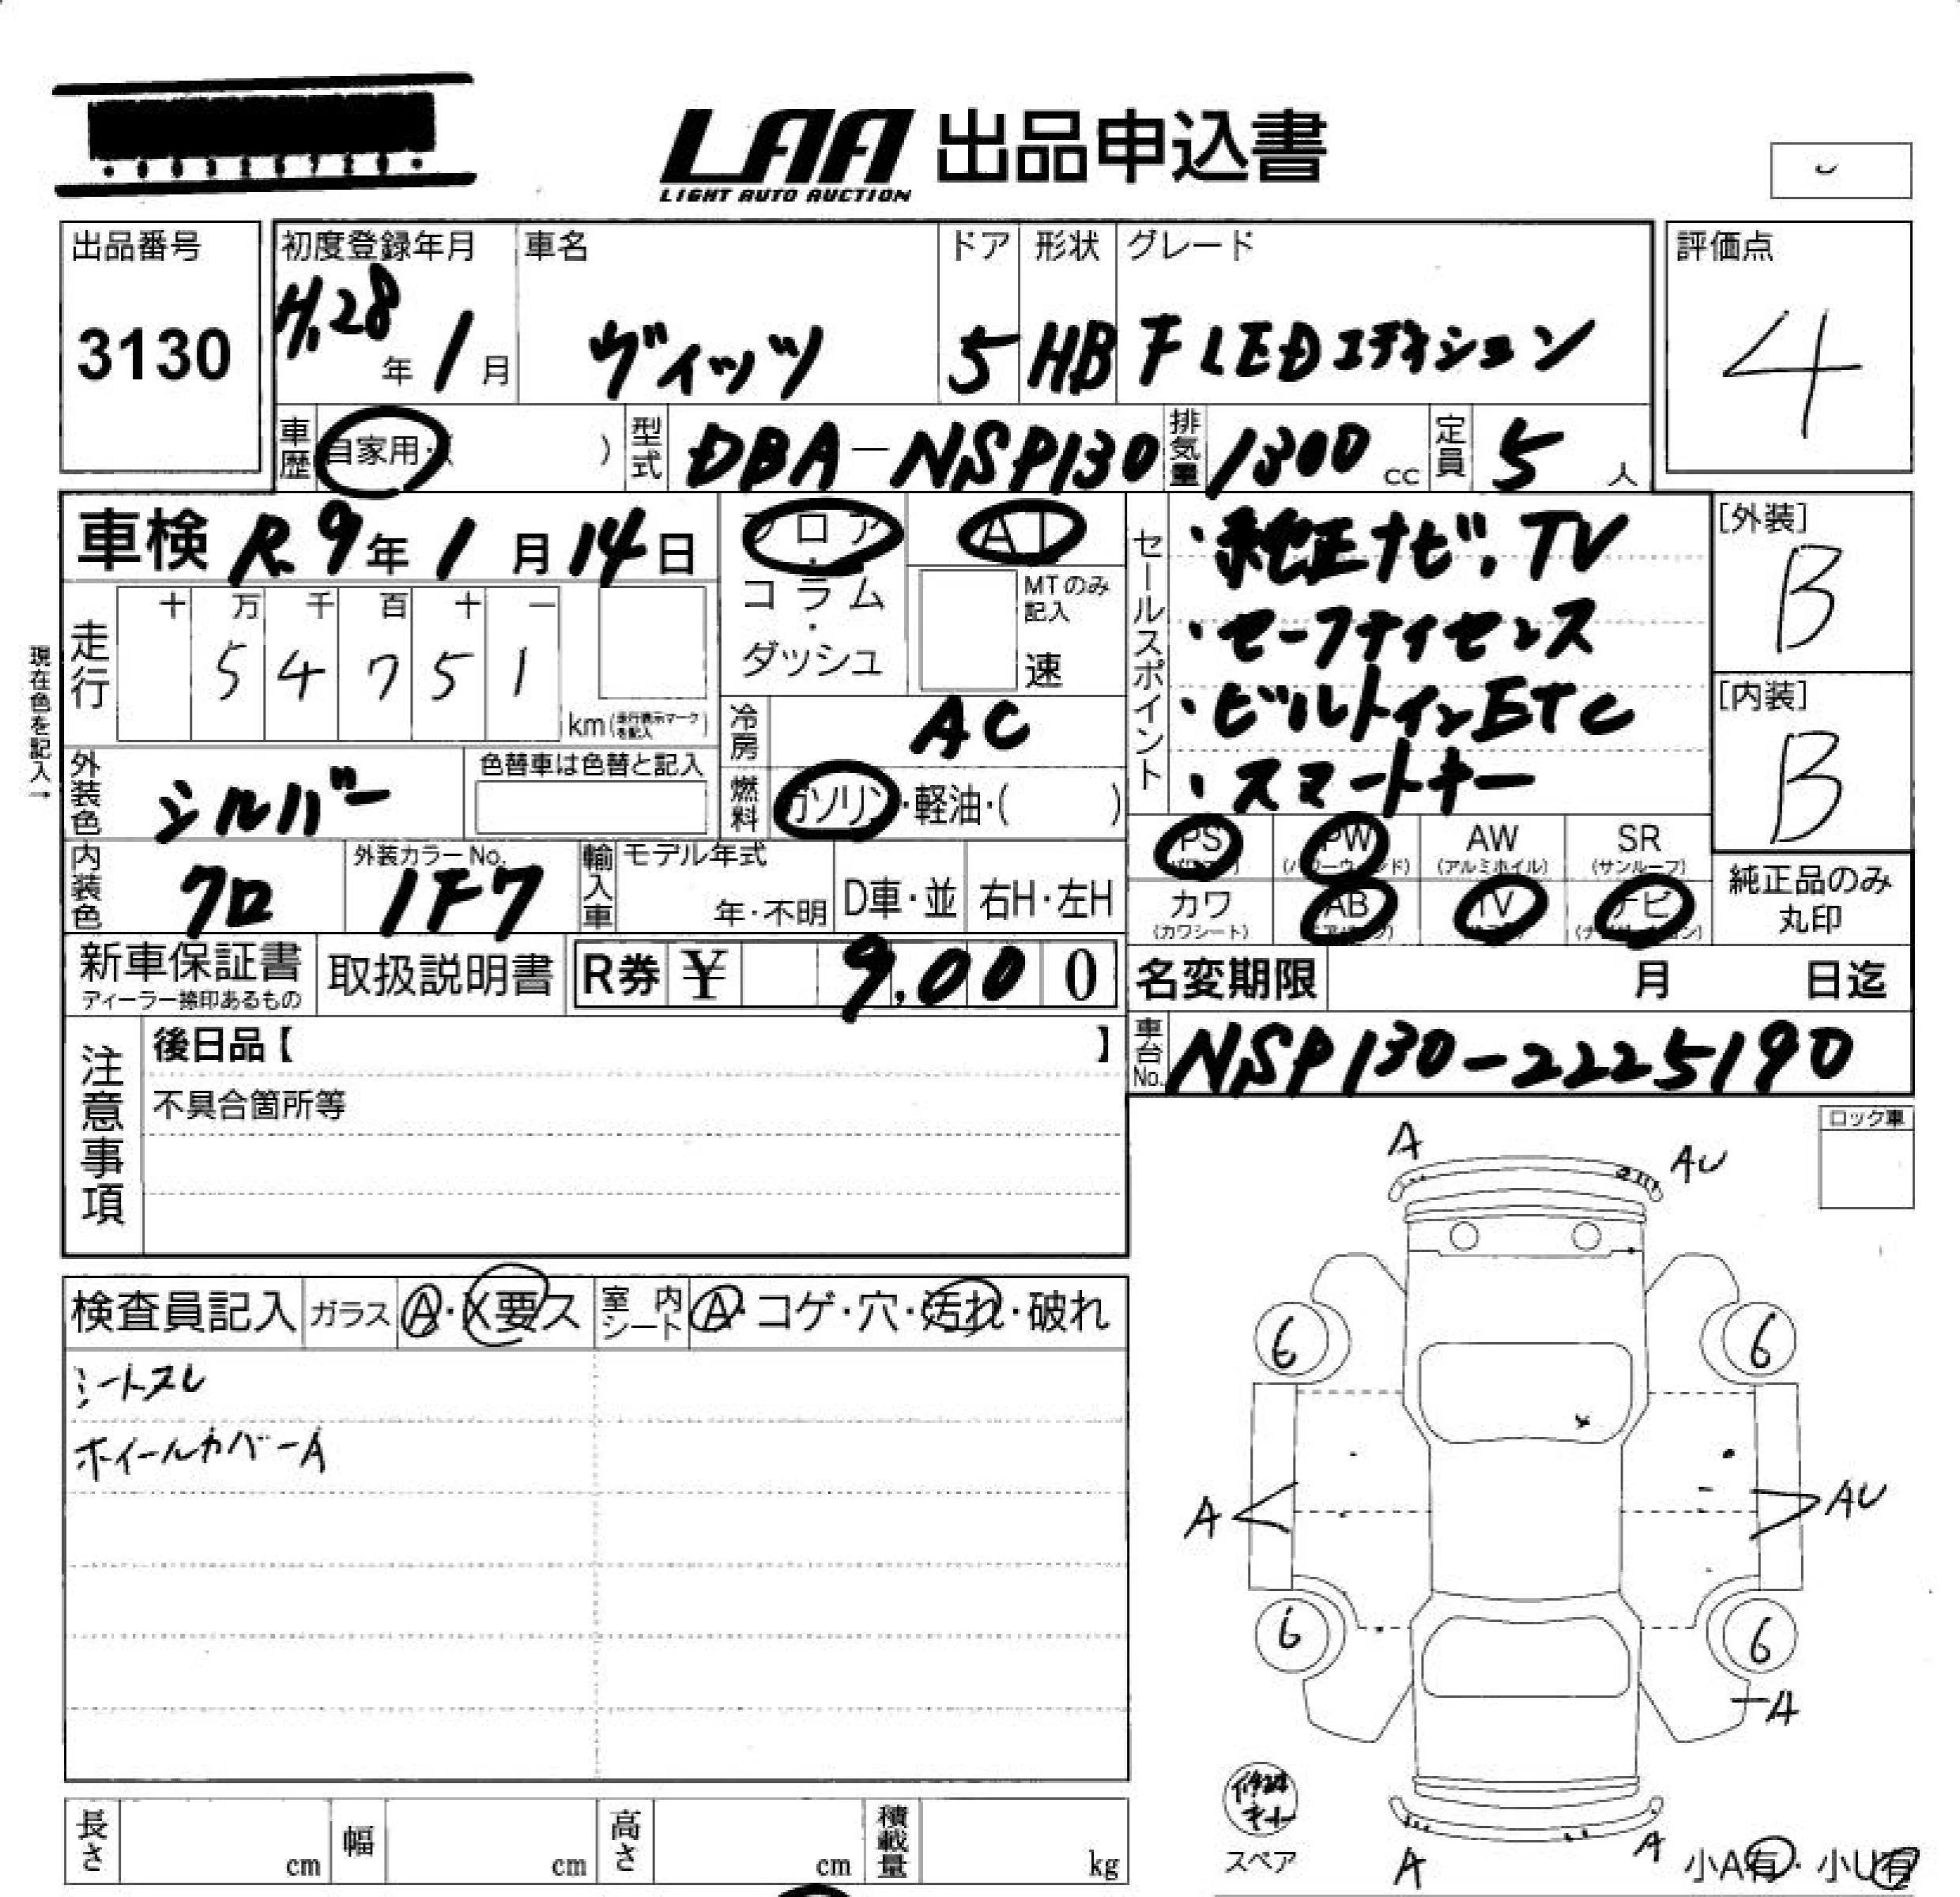 LAA 出品申込書
LIGHT AUTO AUCTION
出品番号
3130
初度登録年月
H.28年 1月
車名
ヴィッツ
ドア
5
形状
HB
グレード
F LEDエディション
評価点
4
車歴 自家用・( )
型式 DBA-NSP130
排気量 1300 cc
定員 5 人
車検 R.9年 1月 14日
フロア・コラム・ダッシュ
AT
MTのみ記入
速
セールスポイント
・純正ナビ.TV
・セーフティセンス
・ビルトインETC
・スマートキー
[外装]
B
[内装]
B
現在色を記入→
走行
十 万 千 百 十 一
5 4 7 5 1
km(走行表示マークを記入)
冷房 AC
外装色 シルバー
色替車は色替と記入
燃料 ガソリン・軽油・( )
PS
PW
AW
(アルミホイル)
SR
(サンルーフ)
内装色 クロ
外装カラーNo.
1F7
輸入車
モデル年式
年・不明
D車・並
右H・左H
カワ
(カワシート)
AB
TV
ナビ
純正品のみ
丸印
新車保証書
ディーラー捺印あるもの
取扱説明書
R券 ¥ 9,000
名変期限 月 日迄
注意事項
後日品【 】
不具合箇所等
車台No. NSP130-2225190
ロック車
A
AU
検査員記入
ガラス A・X要ス
室内シート A・コゲ・穴・汚れ・破れ
シートスレ
ホイールカバーA
6
6
A
AU
6
6
A
スペア
A
A
小A有・小U有
長さ cm
幅 cm
高さ cm
積載量 kg